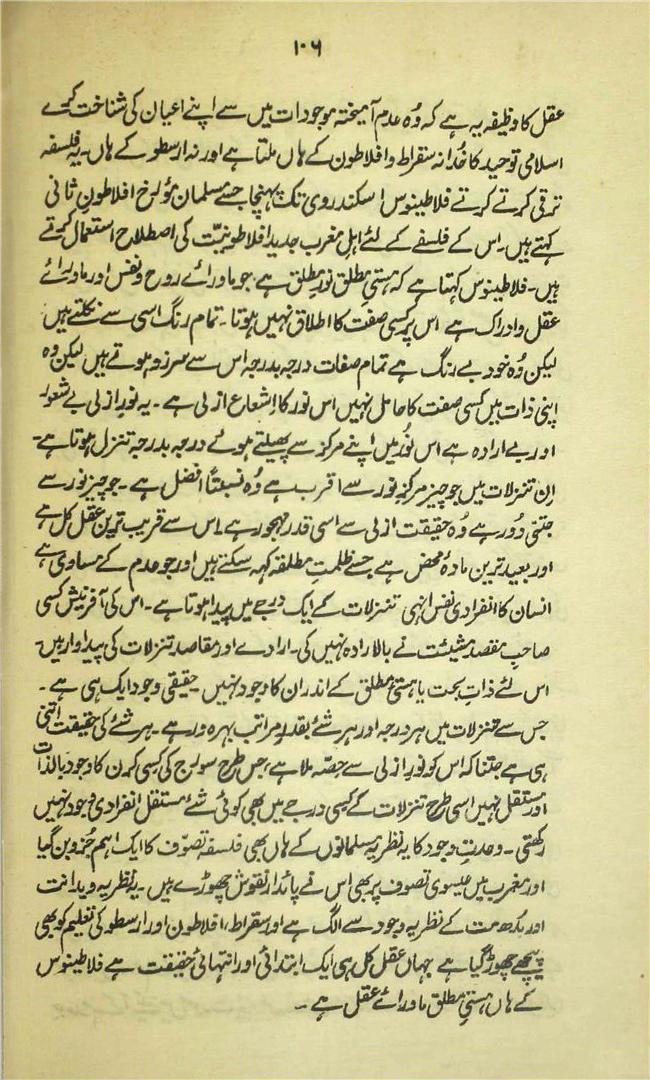 ۱۰۶
عقل کا وظیفہ یہ ہے کہ وُہ عدم آمیختہ موجودات میں سے اپنے اعیان کی شناخت کرے
اسلامی توحید کا خُدا نہ سقراط و افلاطون کے ہاں ملتا ہے اور نہ ارسطو کے ہاں۔ یہ فلسفہ
ترقی کرتے کرتے فلاطینوس اسکندروی تک پہنچا جسے مسلمان مؤرخ افلاطونِ ثانی
کہتے ہیں۔ اس کے فلسفے کے لئے اہلِ مغرب جدید افلاطونیّت کی اصطلاح استعمال کرتے
ہیں۔ فلاطینوس کہتا ہے کہ ہستیِ مطلق نورِ مطلق ہے جو ماورائے روح و نفس اور ماورائے
عقل و ادراک ہے اس پر کسی صفت کا اطلاق نہیں ہوتا۔ تمام رنگ اسی سے نکلتے ہیں
لیکن وُہ خود بے رنگ ہے تمام صفات درجہ بدرجہ اس سے سرزد ہوتے ہیں لیکن وہ
اپنی ذات میں کسی صفت کا حامل نہیں اس نور کا اِشعاع ازلی ہے۔ یہ نورِ ازلی بے شعور
اور بے ارادہ ہے اس نُور میں اپنے مرکز سے پھیلتے ہوئے درجہ بدرجہ تنزل ہوتا ہے۔
اِن تنزلات میں جو چیز مرکزِ نور سے اقرب ہے وُہ نسبتاً افضل ہے۔ جو چیز نور سے
جتنی دُور ہے وُہ حقیقت ازلی سے اسی قدر مہجور ہے۔ اس سے قریب ترین عقل کل ہے
اور بعید ترین مادۂ محض ہے جسے ظلمتِ مطلقہ کہہ سکتے ہیں اور جو عدم کے مساوی ہے
انسان کا انفرادی نفس انہی تنزلات کے ایک درجے میں پیدا ہوتا ہے۔ اس کی آفرینش کسی
صاحبِ مقصد مشیئت نے بالارادہ نہیں کی۔ ارادے اور مقاصد تنزلات کی پیداوار ہیں۔
اس لئے ذاتِ بحت یا ہستیِ مطلق کے اندر ان کا وجود نہیں حقیقی وجود ایک ہی ہے۔
جس سے تنزلات میں ہر درجہ اور ہر شئے بقدرِ مراتب بہرہ ور ہے۔ ہر شئے کی حقیقت اتنی
ہی ہے جتنا کہ اس کو نورِ ازلی سے حصّہ ملا ہے، جس طرح سورج کی کسی کرن کا وجود بالذات
اور مستقل نہیں اسی طرح تنزلات کے کسی درجے میں بھی کوئی شئے مستقل انفرادی وجود نہیں
رکھتی۔ وحدتِ وجود کا یہ نظریہ مسلمانوں کے ہاں بھی فلسفۂ تصوّف کا ایک اہم جُزو بن گیا
اور مغرب میں عیسوی تصوف پر بھی اس نے پائدار نقوش چھوڑے ہیں۔ یہ نظریہ ویدانت
اور بدھ مت کے نظریہ وجود سے الگ ہے اور سقراط، افلاطون اور ارسطو کی تعلیم کو بھی
پیچھے چھوڑ گیا ہے جہاں عقل کل ہی ایک ابتدائی اور انتہائی حقیقت ہے فلاطینوس
کے ہاں ہستیِ مطلق ماورائے عقل ہے۔